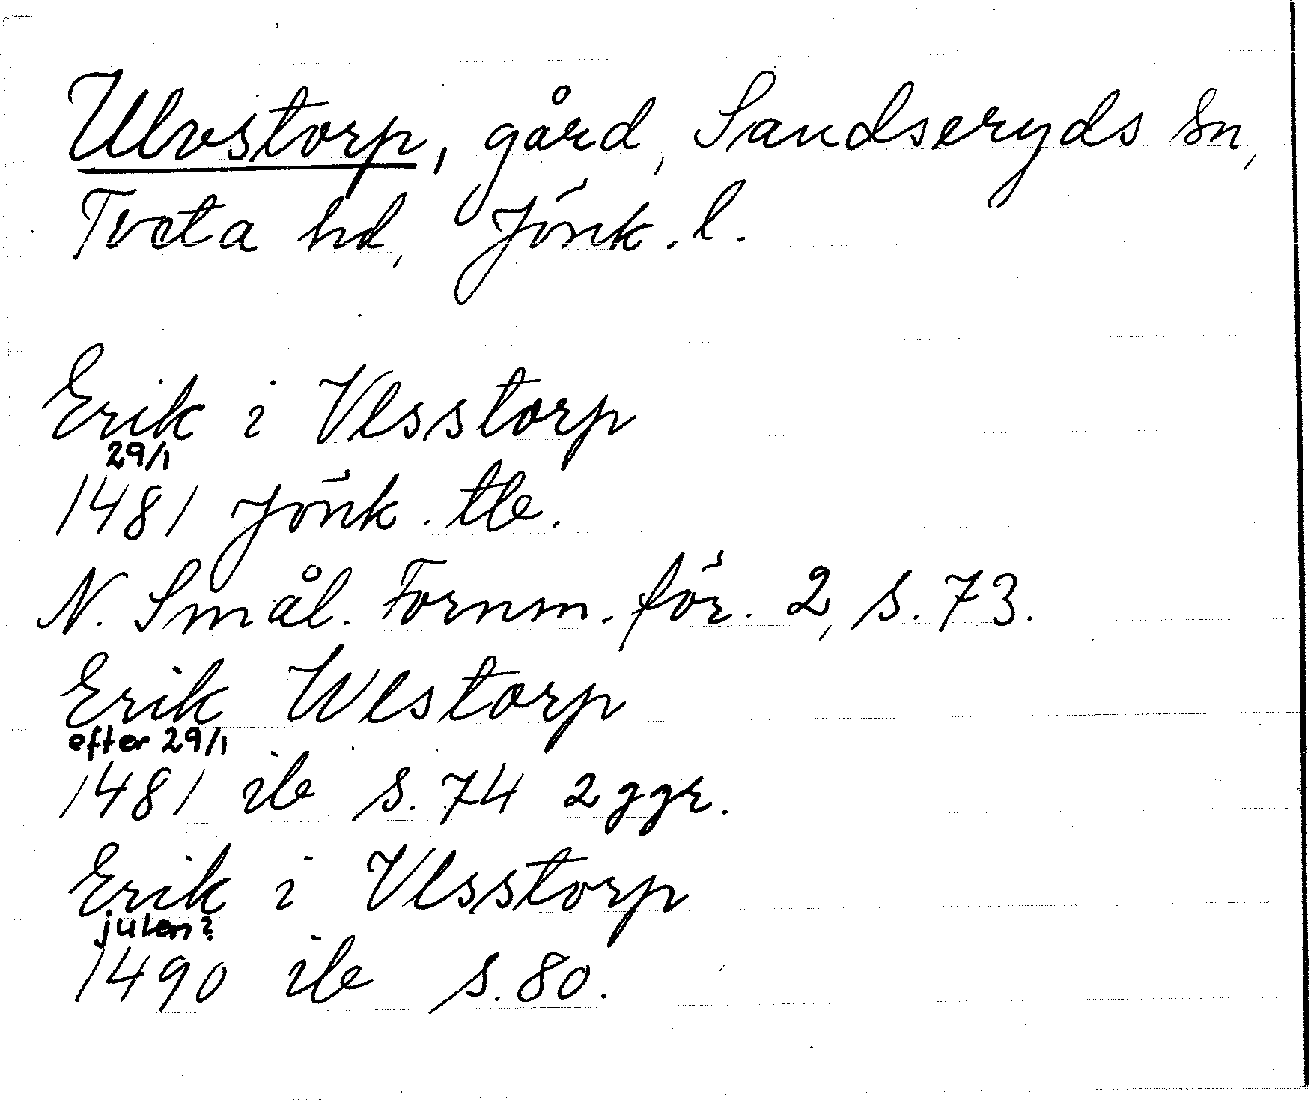 Ulvstorp, gård, Sandseryds sn,
Tveta hd, Jönk. l.
Erik i Vlsstorp
29/1
1481 Jönk. tb.
N. Smål. Fornm. för. 2, s. 73.
Erik Wlstorp
efter 29/1
1481 ib s. 74 2 ggr.
Erik i Vlsstorp
julen?
1490 ib s. 80.